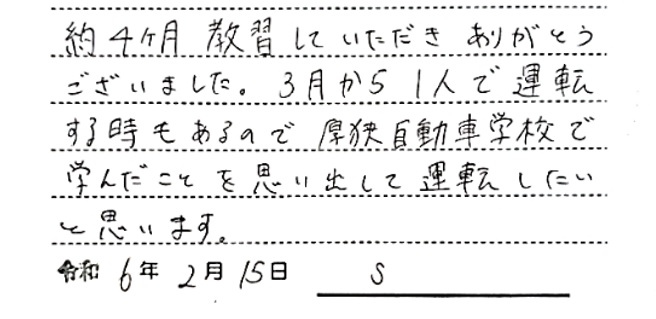 約4ヶ月 教習していただき ありがとう
ございました。3月から 1人で 運転
する時もあるので 厚狭自動車学校で
学んだことを思い出して 運転したい
と思います。
令和 6年 2月 15日 S